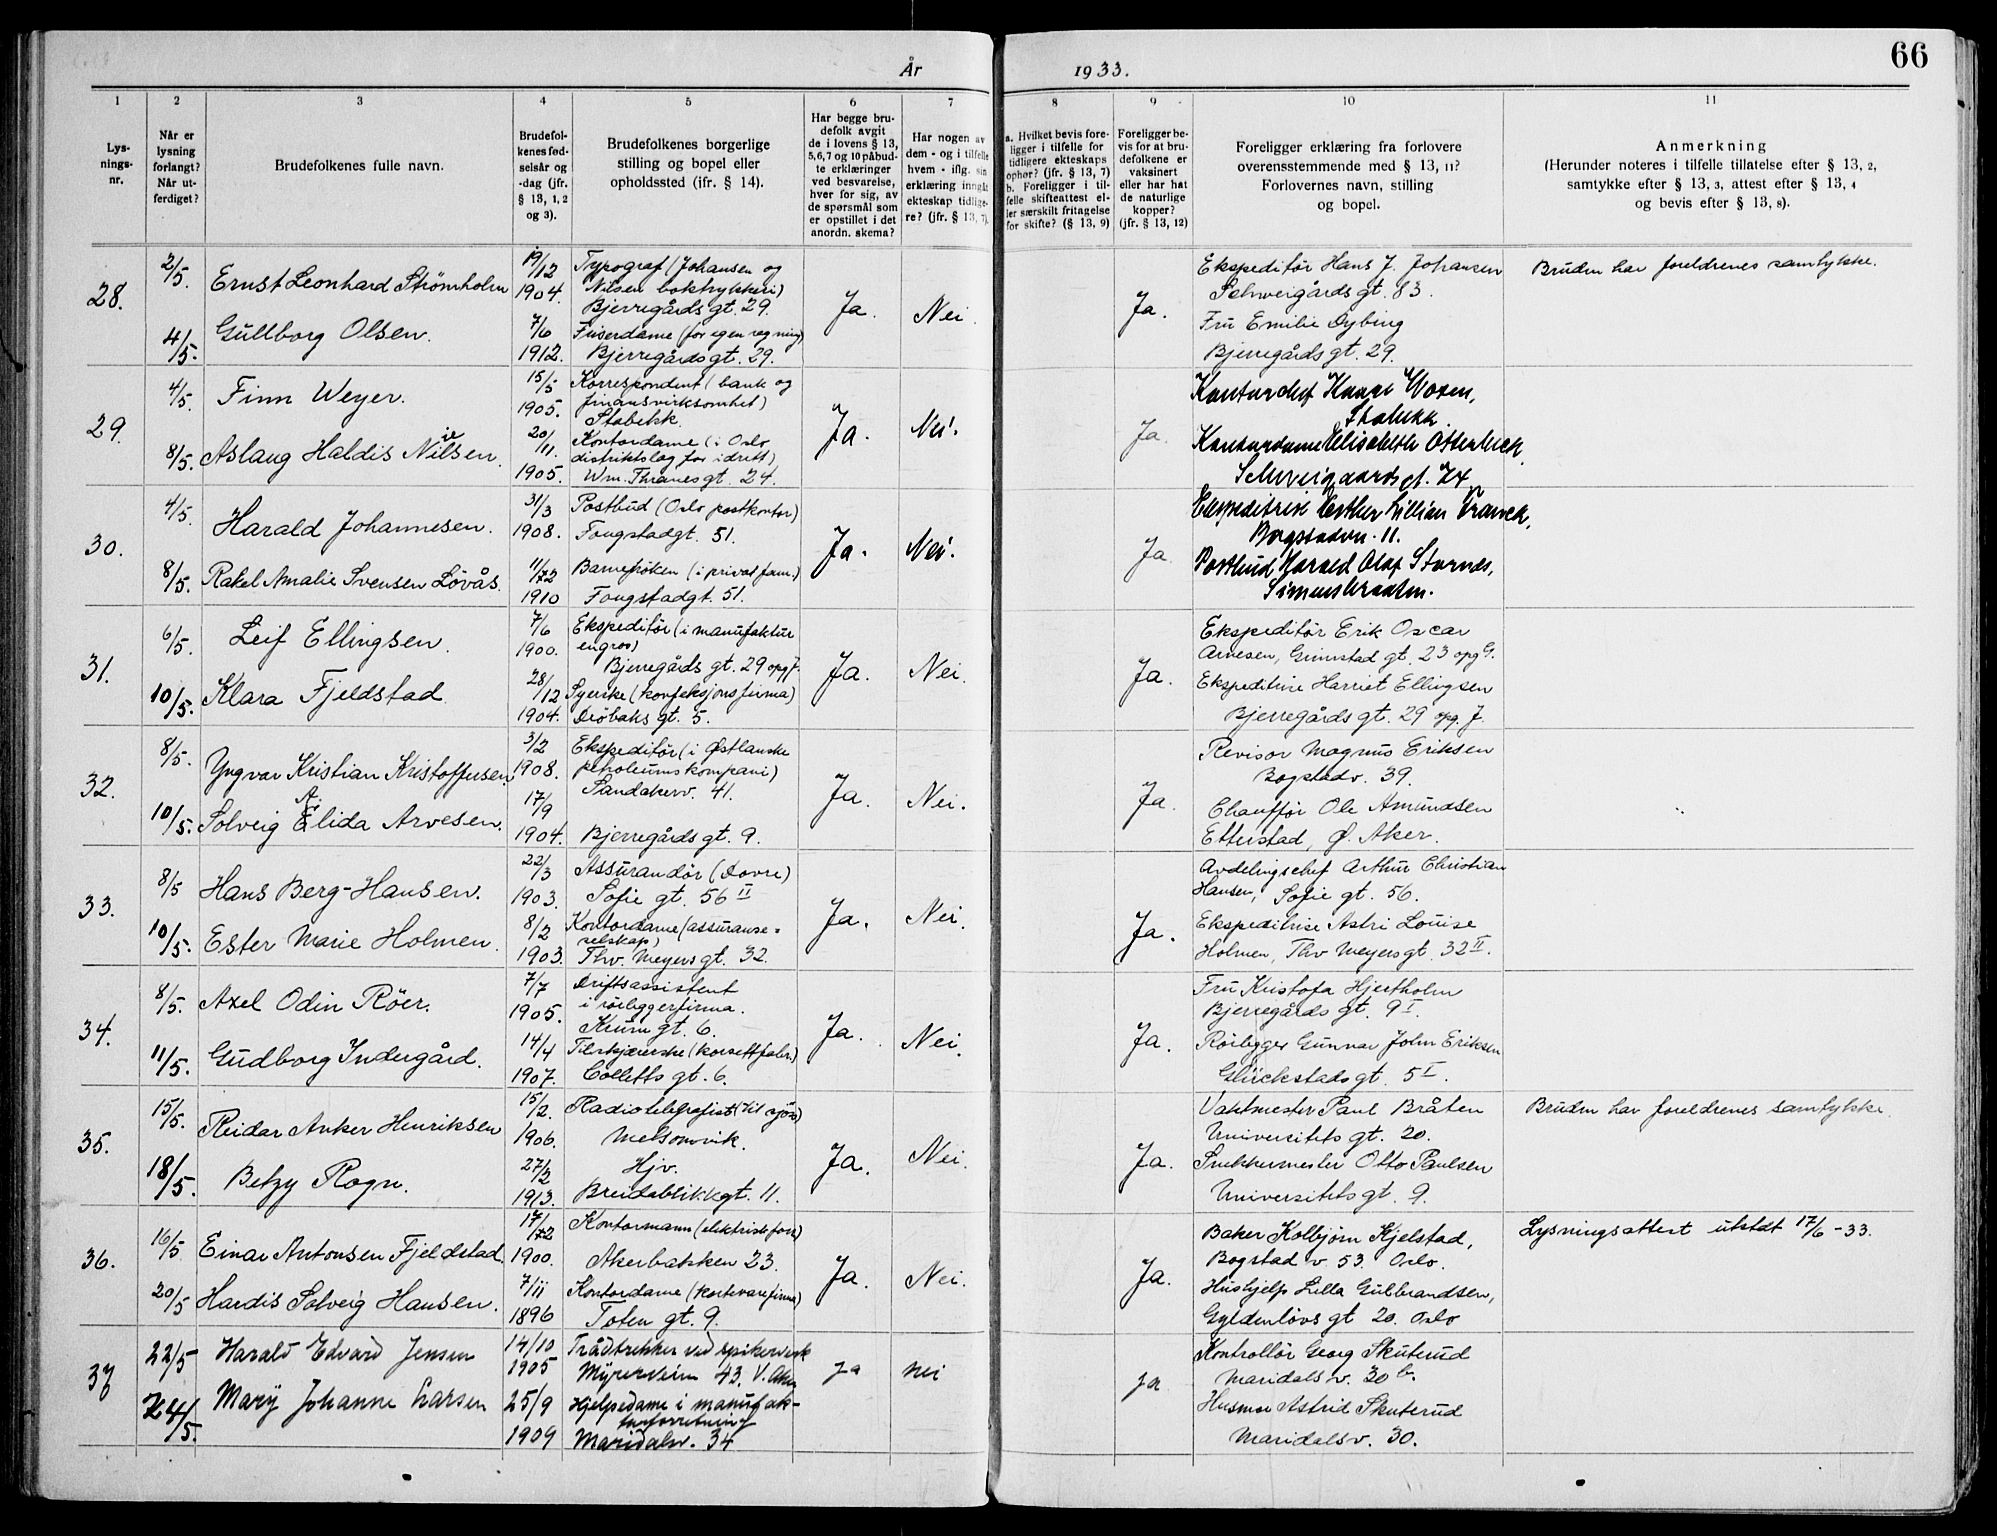 66
År 1933.
1
Lys-
nings-
nr.
2
Når er
lysning
forlangt?
Når ut-
ferdiget?
3
Brudefolkenes fulle navn.
4
Brudefol-
kenes fød-
selsår og
-dag (jfr.
§ 13, 1, 2
og 3).
5
Brudefolkenes borgerlige
stilling og bopel eller
opholdssted (ifr. § 14).
6
Har begge bru-
defolk avgit
de i lovens § 13,
5,6,7 og 10 påbud-
te erklæringer
ved besvarelse,
hver for sig, av
de spørsmål som
er opstillet i det
anordn. skema?
7
Har nogen av
dem - og i tilfelle
hvem - iflg. sin
erklæring inngått
ekteskap tidlige-
re? (jfr. § 13, 7).
8
a. Hvilket bevis fore-
ligger i tilfelle for
tidligere ekteskaps
ophør? (jfr. § 13, 7)
b. Foreligger i til-
felle skifteattest el-
ler særskilt fritagelse
for skifte? (§ 13, 9)
9
Foreligger be-
vis for at bru-
defolkene er
vaksinert
eller har hat
de naturlige
kopper?
(jfr. § 13, 12)
10
Foreligger erklæring fra forlovere
overensstemmende med § 13, 11?
Forlovernes navn, stilling
og bopel.
11
Anmerkning
(Herunder noteres i tilfelle tillatelse efter § 13, 2,
samtykke efter § 13, 3, attest efter § 13, 4
og bevis efter § 13, 8).
28.
2/5.
4/5.
Ernst Leonhard Strömholm
Gullborg Olsen.
19/12
1904.
7/6
1912.
Typograf (Johansen og
Nilsen boktrykkeri)
Bjerregårds gt. 29.
Friserdame (for egen regning)
Bjerregårds gt. 29.
Ja.
Nei.
Ja.
Ekspeditör Hans J. Johansen
Schweigårds gt. 83.
Fru Emilie Dybing
Bjerregårds gt. 29.
Bruden har foreldrenes samtykke.
29.
4/5.
8/5.
Finn Weyer.
ie
Aslaug Haldis Nilsen.
15/5
1905.
20/11.
1905.
Korrespondent (bank og
finansvirksomhet)
Stabekk.
Kontordame (i Oslo
distriktslag for idrett)
Wm. Thranes gt. 24.
Ja.
Nei.
Ja.
Kontorchef Kaare Woxen,
Stabekk.
Kontordame Elisabeth Otterbeck,
Schweigaardsgt. 74
30.
4/5.
8/5.
Harald Johannesen.
Rakel Amalie Svensen Lövås.
31/3
1908.
11/12
1910
Postbud (Oslo postkontor)
Fougstadgt. 51.
Barnefröken (i privat fam.)
Fougstadgt. 51.
Ja.
Nei.
Ja
Ekspeditrise Esther Lillian Franck,
Bogstadvn. 11.
Postbud Harald Olaf Stornes,
Simensbraaten.
31.
6/5.
10/5.
Leif Ellingsen.
Klara Fjeldstad.
7/6
1900.
28/12
1904.
Ekspeditör (i manufaktur
engros)
Bjerregårds gt. 29 opg J.
Syerske (konfeksjonsfirma)
Dröbaks gt. 5.
Ja.
Nei.
Ja.
Ekspeditör Erik Oscar
Arnesen, Grimstad gt. 23 opg G.
Ekspeditrise Harriet Ellingsen
Bjerregårds gt. 29 opg. J.
32.
8/5.
10/5.
Yngvar Kristian Kristoffersen.
A.
Solveig Elida Arvesen.
3/2
1908.
17/9
1904.
Ekspeditör (i Østlanske
petroleumskompani)
Sandakerv. 41.
Bjerregårds gt. 9.
Ja.
Nei.
Ja.
Revisor Magnus Eriksen
Bogstadv. 39.
Chauffør Ole Amundsen
Etterstad, Ø. Aker.
33.
8/5
10/5.
Hans Berg-Hansen.
Ester Marie Holmen.
22/3
1903.
8/2
1903.
Assurandör (Dovre)
Sofie gt. 56 II
Kontordame (assuranse-
selskap)
Thv. Meyers gt. 32.
Ja.
Nei.
Ja.
Avdelingschef Arthur Christian
Hansen, Sofie gt. 56.
Ekspeditrise Astri Louise
Holmen, Thv Meyers gt. 32 II.
34.
8/5.
11/5.
Axel Odin Röer.
Gudborg Indergård.
7/7
1905.
14/4
1907.
Driftsassistent
i rörleggerfirma.
Krum gt. 6.
Tilskjærerske (korsettfabr.)
Colletts gt. 6.
Ja.
Nei.
Ja.
Fru Kristofa Hjertholm
Bjerregårds gt. 9 I.
Rörlegger Gunnar John Eriksen
Glückstads gt. 5 I.
35.
15/5.
18/5.
Reidar Anker Henriksen
Betzy Rogn.
15/2.
1906.
27/2
1913.
Radiotelegrafist (til sjös)
Melsomvik.
Hjv.
Breidablikkgt. 11.
Ja.
Nei.
Ja.
Vaktmester Paul Bråten
Universitets gt. 20.
Snekkermester Otto Paulsen
Universitets gt. 9.
Bruden har foreldrenes samtykke.
36.
16/5.
20/5
Einar Antonsen Fjeldstad.
Hardis Solveig Hansen.
17/12
1900.
7/11
1896
Kontormann (elektriske forr.)
Akerbakken 23.
Kontordame (kortevarefirma)
Toten gt. 9.
Ja.
Nei.
Ja.
Baker Kolbjörn Kjelstad,
Bogstad v. 53. Oslo.
Hushjelp Lilla Gulbrandsen,
Gyldenlövs gt 20. Oslo
Lysningsattest utstdt 17/6-33.
37
22/5
24/5.
Harald Edvard Jensen
Mary Johanne Larsen
14/10
1905
25/9
1909
Trådtrekker ved spikerverk
Myrerveien 43. V. Aker
Hjelpedame i manufak-
turforretning
Maridalsv. 34
ja
nei
ja
Kontrollör Georg Skuterud
Maridals v. 30 b.
Husmor Astrid Skuterud
Maridalsv. 30.